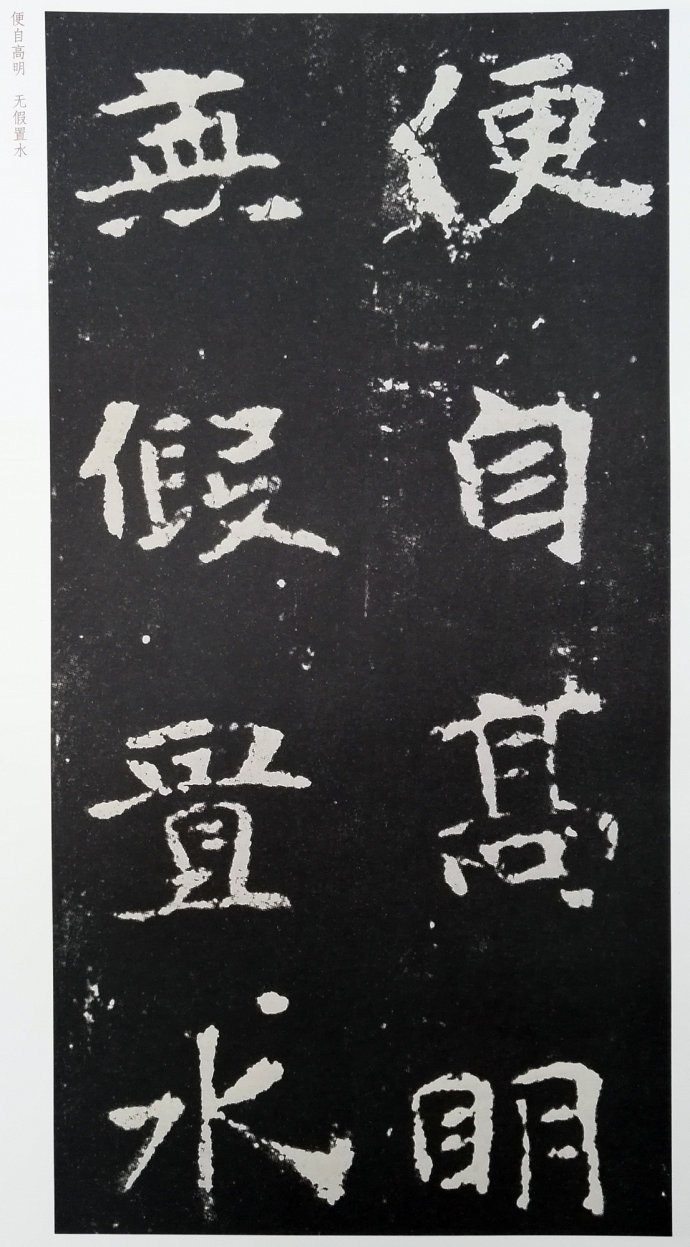 便自高明
無假置水
便自高明 无假置水